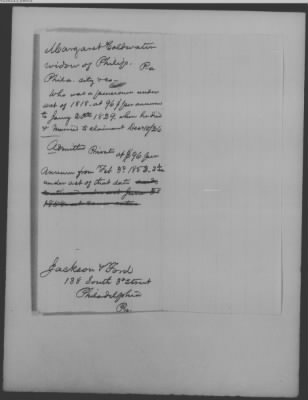 Margaret Coldwater
widow of Philip. Pa
Phila. city & co—
Who was a pensioner under
act of 1818. at 96 $ per annum
to Jany 20th 1829. when he died
& Married to claimant Dec 10/26
Admitted Private at $96 per
Annum from Feb 3d 1853.
under act of that date
Jackson & Ford
138 South 3d Street
Philadelphia
Pa.